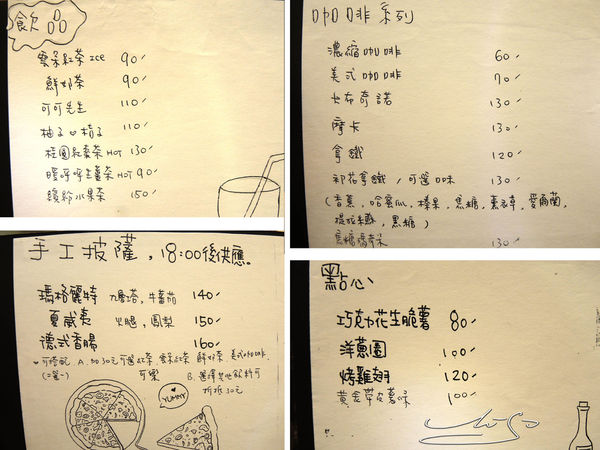 飲品
雲朵紅茶 ICE 90
鮮奶茶 90
可可先生 110
柚子 桔子 110
桂圓紅棗茶 HOT 130
暖呼呼生薑茶 HOT 90
繽紛水果茶 150
咖啡系列
濃縮咖啡 60
美式咖啡 70
卡布奇諾 130
摩卡 130
拿鐵 120
花拿鐵 / 可選口味 130
(香蕉, 哈蜜瓜, 榛果, 焦糖, 薰衣草, 愛爾蘭,
提拉米蘇, 黑糖)
焦糖瑪奇朵 130
手工披薩, 18:00後供應。
瑪格麗特 九層塔, 牛蕃茄 140
夏威夷 火腿, 鳳梨 150
德式香腸 160
可搭配 A. 加30元可選紅茶 鮮奶茶 美式咖啡
(二選一) 可樂 B. 選擇其他飲料可
折抵30元
YUMMY
點心
巧克力花生脆薯 80
洋蔥圈 100
烤雞翅 120
黃金帶皮薯 100